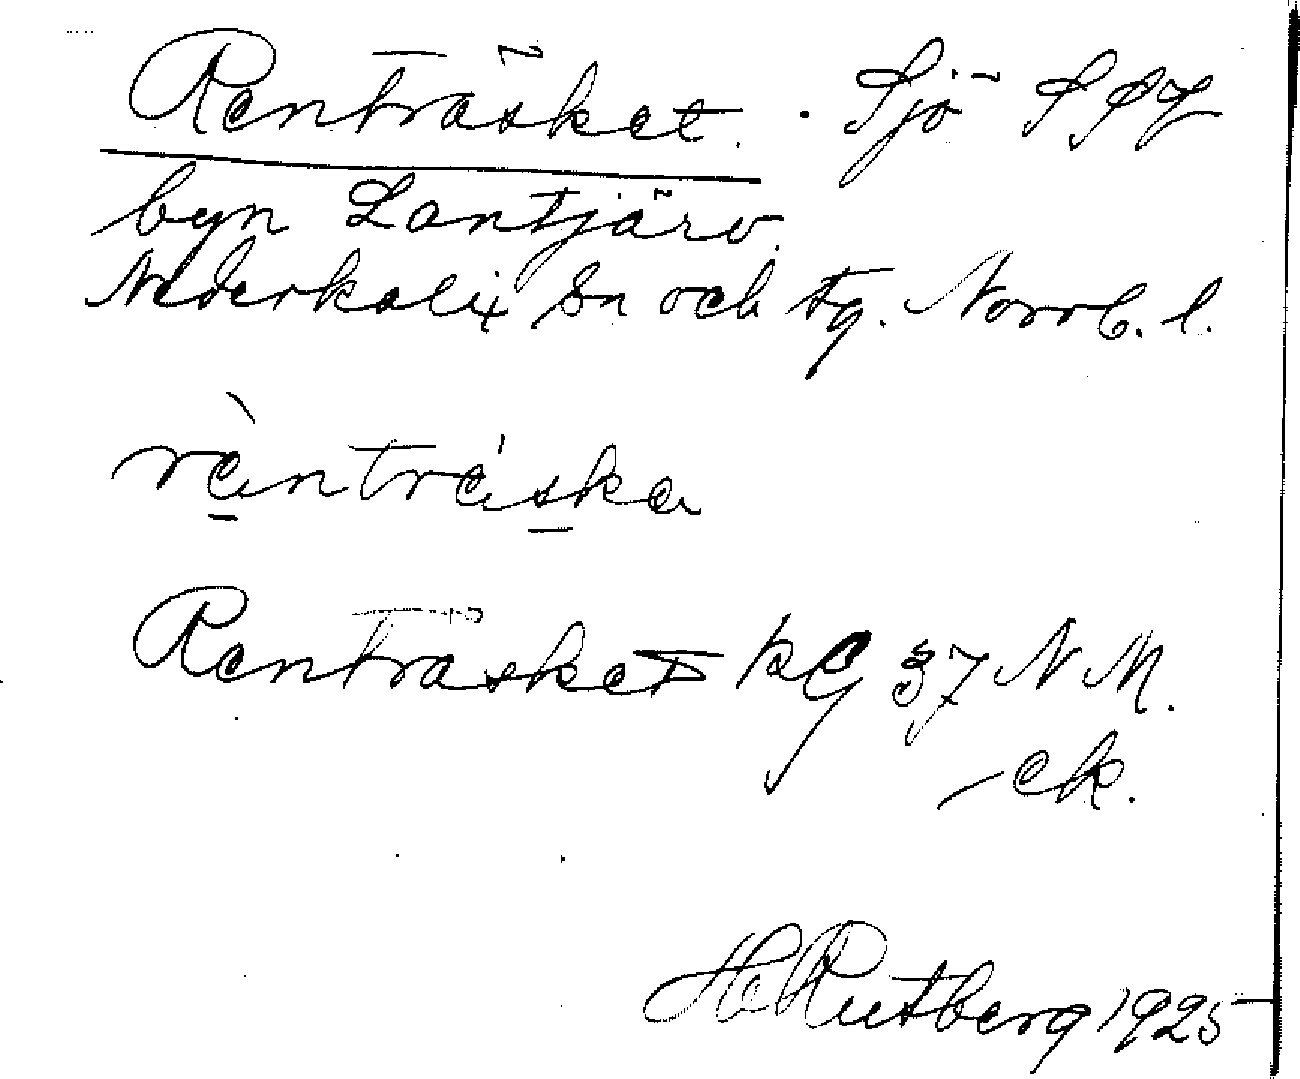 Renträsket. Sjö
byn Lantjärv.
Nederkalix sn och tg. Norrb. l.
rènträ́ska
Renträsket kg 37 N M.
-ek.
H Rutberg 1925